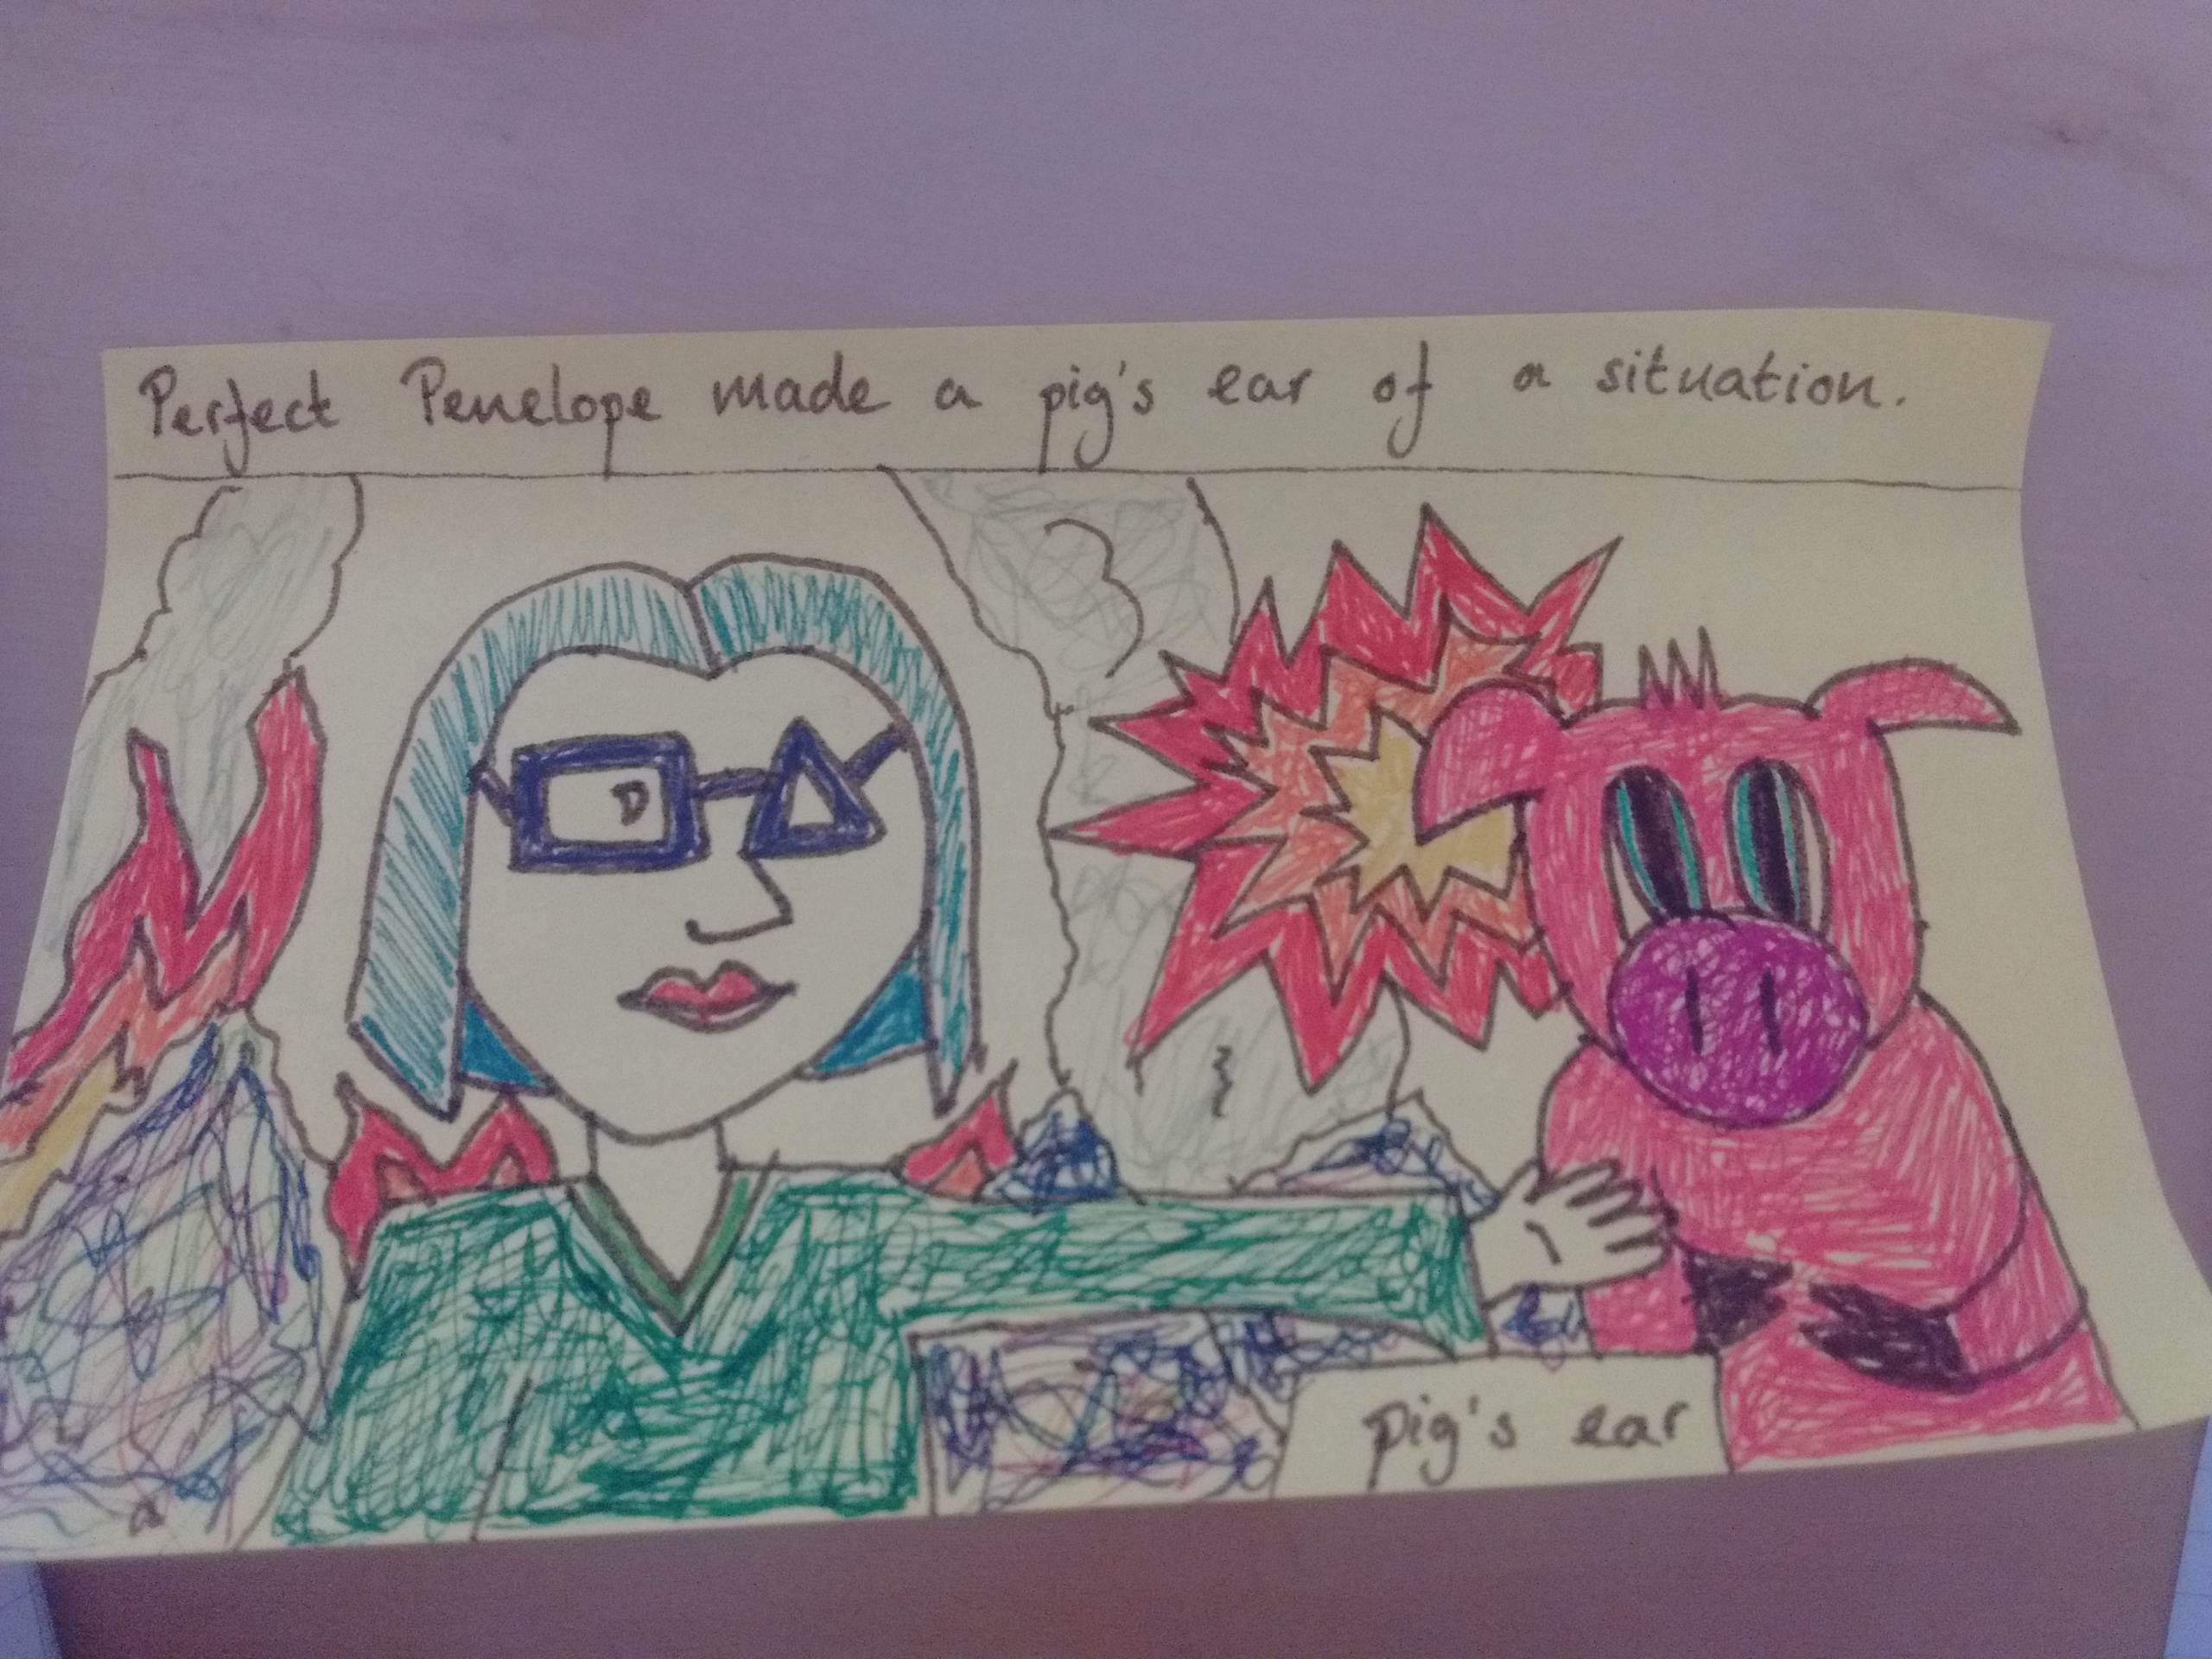 Perfect Penelope made a pig's ear of a situation.
pig's ear